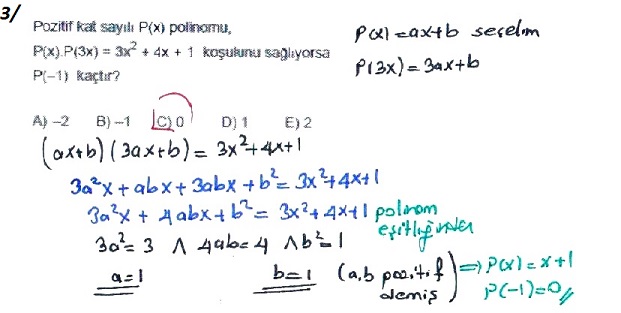 3/
Pozitif kat sayılı P(x) polinomu,
P(x).P(3x) = 3x² + 4x + 1 koşulunu sağlıyorsa
P(−1) kaçtır?
P(x) = ax+b seçelim
P(3x) = 3ax+b
A) −2 B) −1 C) 0 D) 1 E) 2
(ax+b) (3ax+b) = 3x²+4x+1
3a²x + abx + 3abx + b² = 3x²+4x+1
3a²x + 4abx + b² = 3x²+4x+1 polinom
eşitliğinden
3a² = 3 ∧ 4ab = 4 ∧ b² = 1
a=1 b=1 (a,b pozitif
demiş) ⇒ P(x) = x+1
P(−1) = 0 //